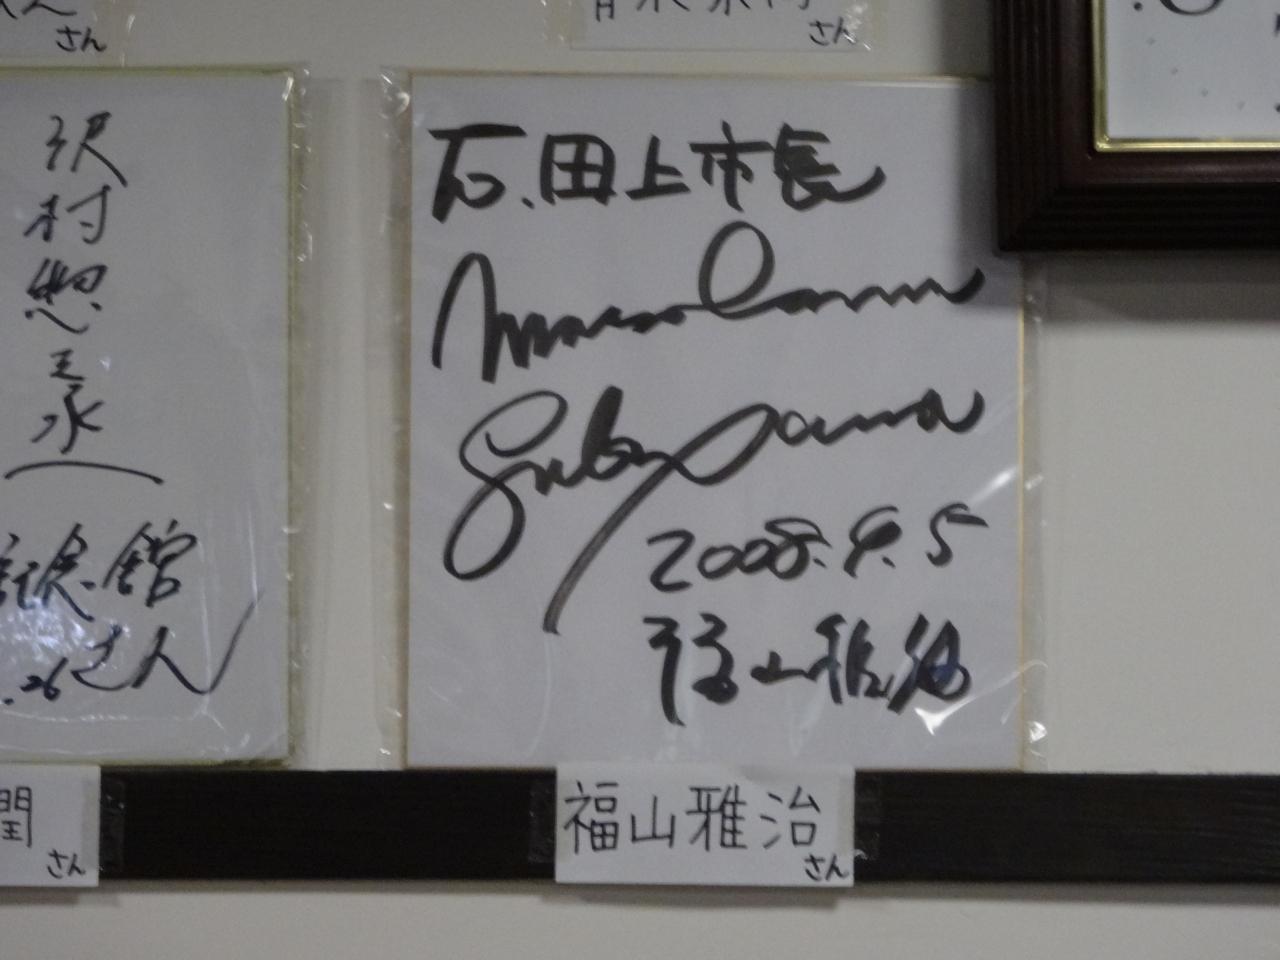 さん
さん
沢
村
惣
之
丞
館
さん
.26
石、田上市長
Masaharu
Fukuyama
2008.9.5
福山雅治
さん
福山雅治
さん